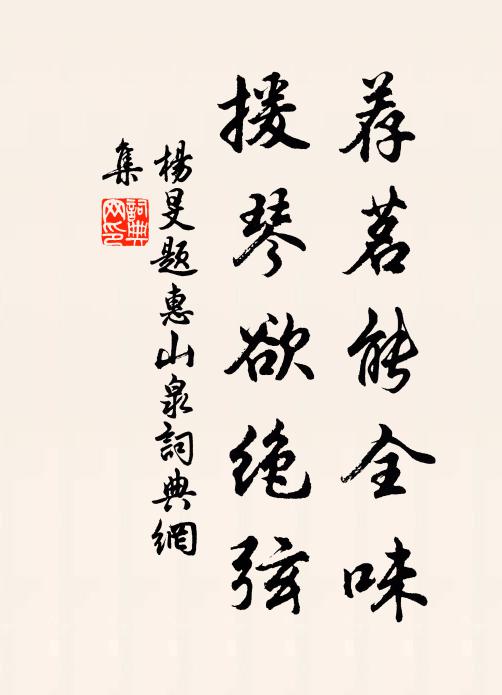 荐茗能全味
援琴欲绝弦
楊旻题惠山泉詞典網
集
詞典
网印